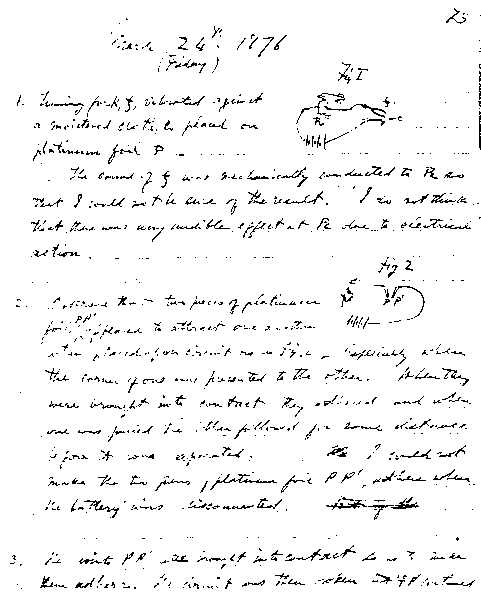 75
March 24th 1876
(Friday)
Fig I
1. Tuning fork, f, vibrated against
a moistened cloth, C, placed on
platinum foil P.
The sound of f was mechanically conducted to R so
that I could not be sure of the result. I do not think
that there was any audible effect at R due to electrical
action.
Fig 2
2. I observe that two pieces of platinum
foil PP' appeared to attract one another
when placed upon circuit as in Fig. 2 – especially when
the corner of one was presented to the other. When they
were brought into contact they adhered and when
one was moved the other followed for some distance
before it was separated. I could not
make the two pieces of platinum foil PP' adhere when
the battery was disconnected.
3. The points PP' were brought into contact so as to make
them adhere. The circuit was then broken